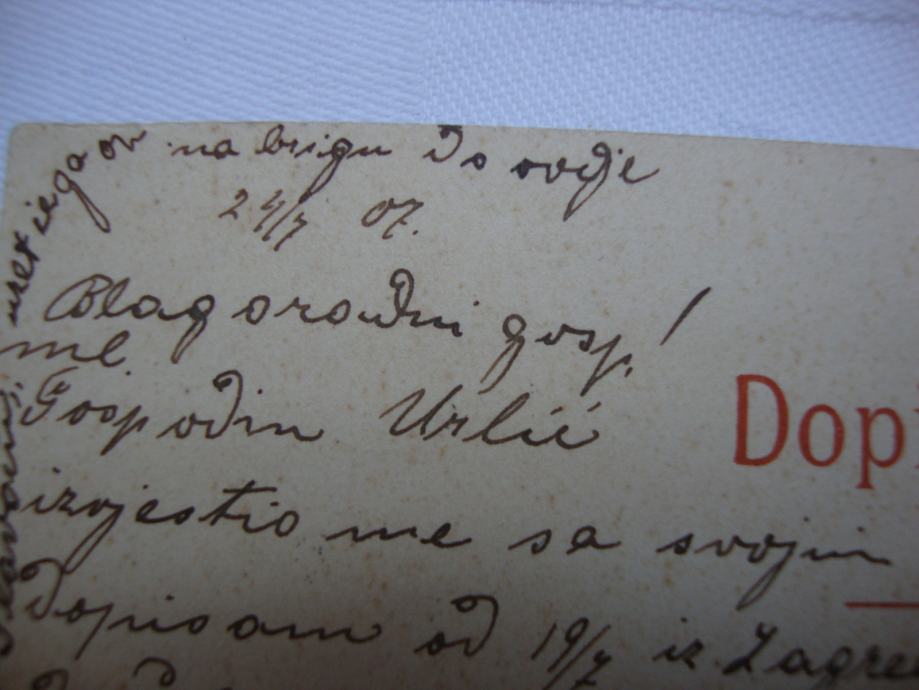 na brigu Do ovdje
24/7 07.
Blagorodni gosp!
me
Gospodin Urlić
Dop
izvjestio me sa svojim
dopisom od 19/7 iz Zagre